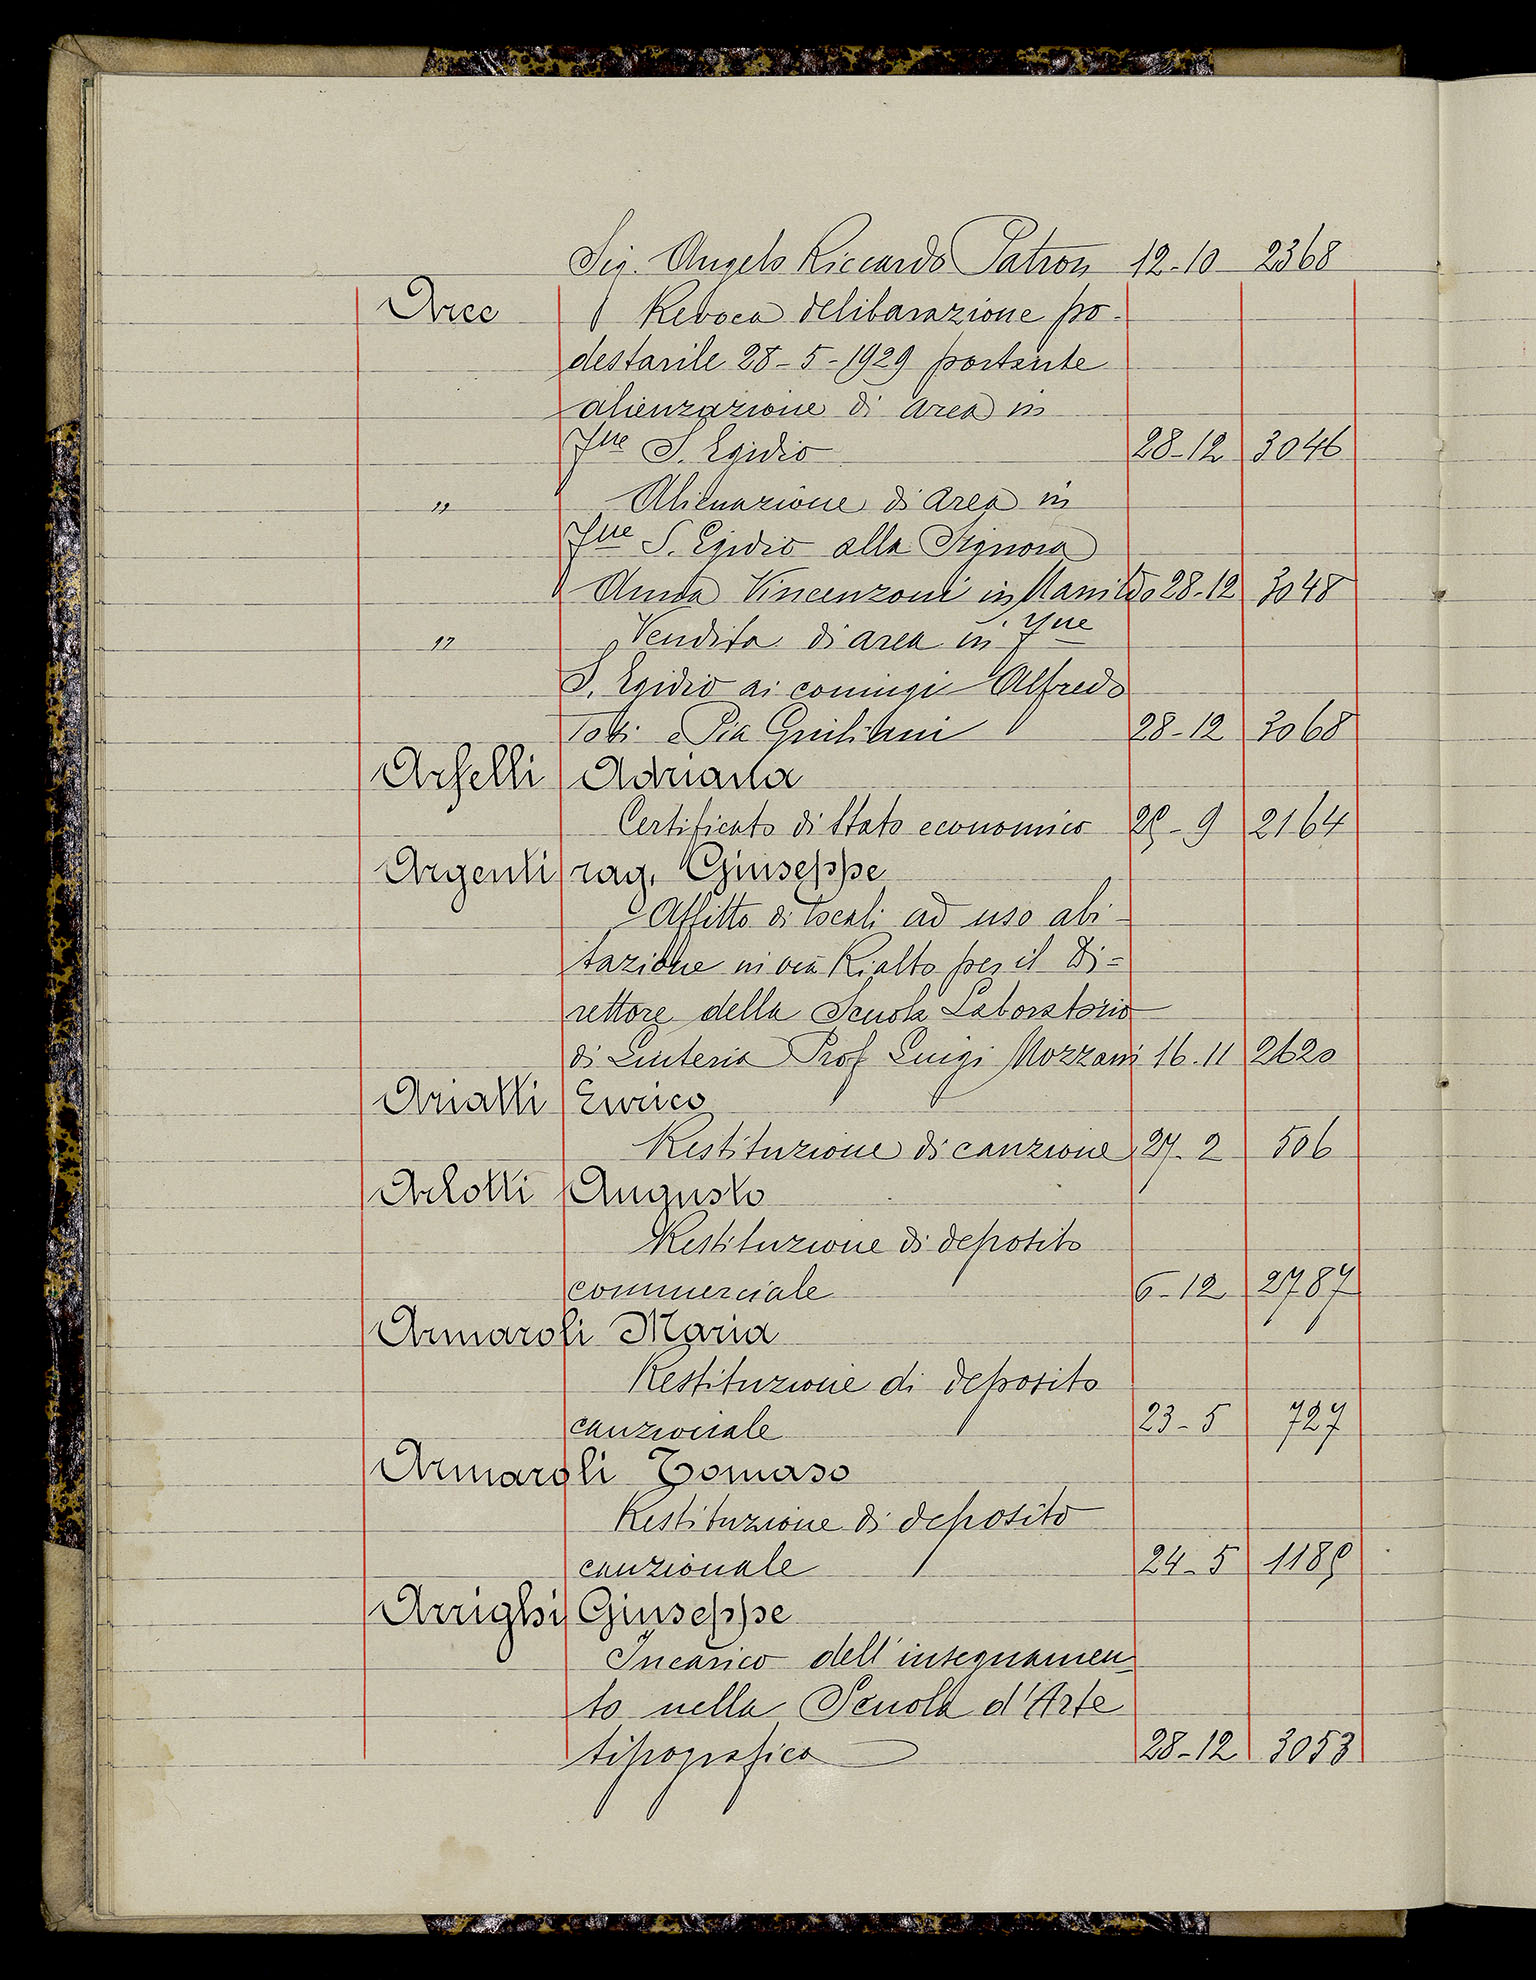 Sig. Angelo Riccardo Patron 12-10 2368
Aree Revoca delibarazione po-
destarile 28-5-1929 portante
alienzazione di area in
Fne S. Egidio 28-12 3046
" Alienazione di area in
Fne S. Egidio alla Signora
Vincenzoni in 28-12 3048
" Vendita di area in Fne
S. Egidio ai coniugi Alfredo
e Pia Giuliani 28-12 3068
Arfelli Adriana
Certificato di Stato economico 29-9 2164
Argenti rag. Giuseppe
Affitto di locali ad uso abi-
tazione in via Rialto per il Di=
rettore della Scuola Laboratorio
di Liuteria Prof Luigi Mozzani 16-11 2620
Ariatti Enrico
Restituzione di cauzione 27-2 506
Arlotti Augusto
Restituzione di deposito
commerciale 6-12 2787
Armaroli Maria
Restituzione di deposito
cauzionale 23-5 727
Armaroli Tomaso
Restituzione di deposito
cauzionale 24-5 1189
Arrighi Giuseppe
Incarico dell'insegnamen
to nella Scuola d'Arte
tipografica 28-12 3053